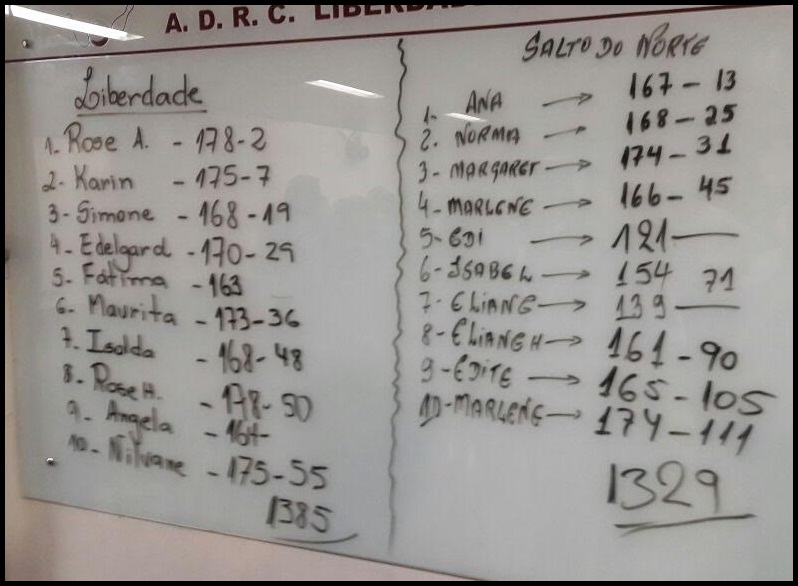 A. D. R. C. LIBERDA
Liberdade
1. Rose A. - 178-2
2. Karin - 175-7
3- Simone - 168-19
4- Edelgard - 170-29
5. Fátima - 163
6- Maurita - 173-36
7. Isolda - 168-48
8. Rose H. - 178-50
9. Angela - 164-
10- Nilvane - 175-55
1385
SALTO DO NORTE
1- ANA → 167-13
2. NORMA → 168-25
3- MARGARET → 174-31
4- MARLENE → 166-45
5- EDI → 121—
6- ISABEL → 154 71
7- ELIANE → 139—
8- ELIANE H → 161-90
9- EDITE → 165-105
10- MARLENE → 174-111
1329